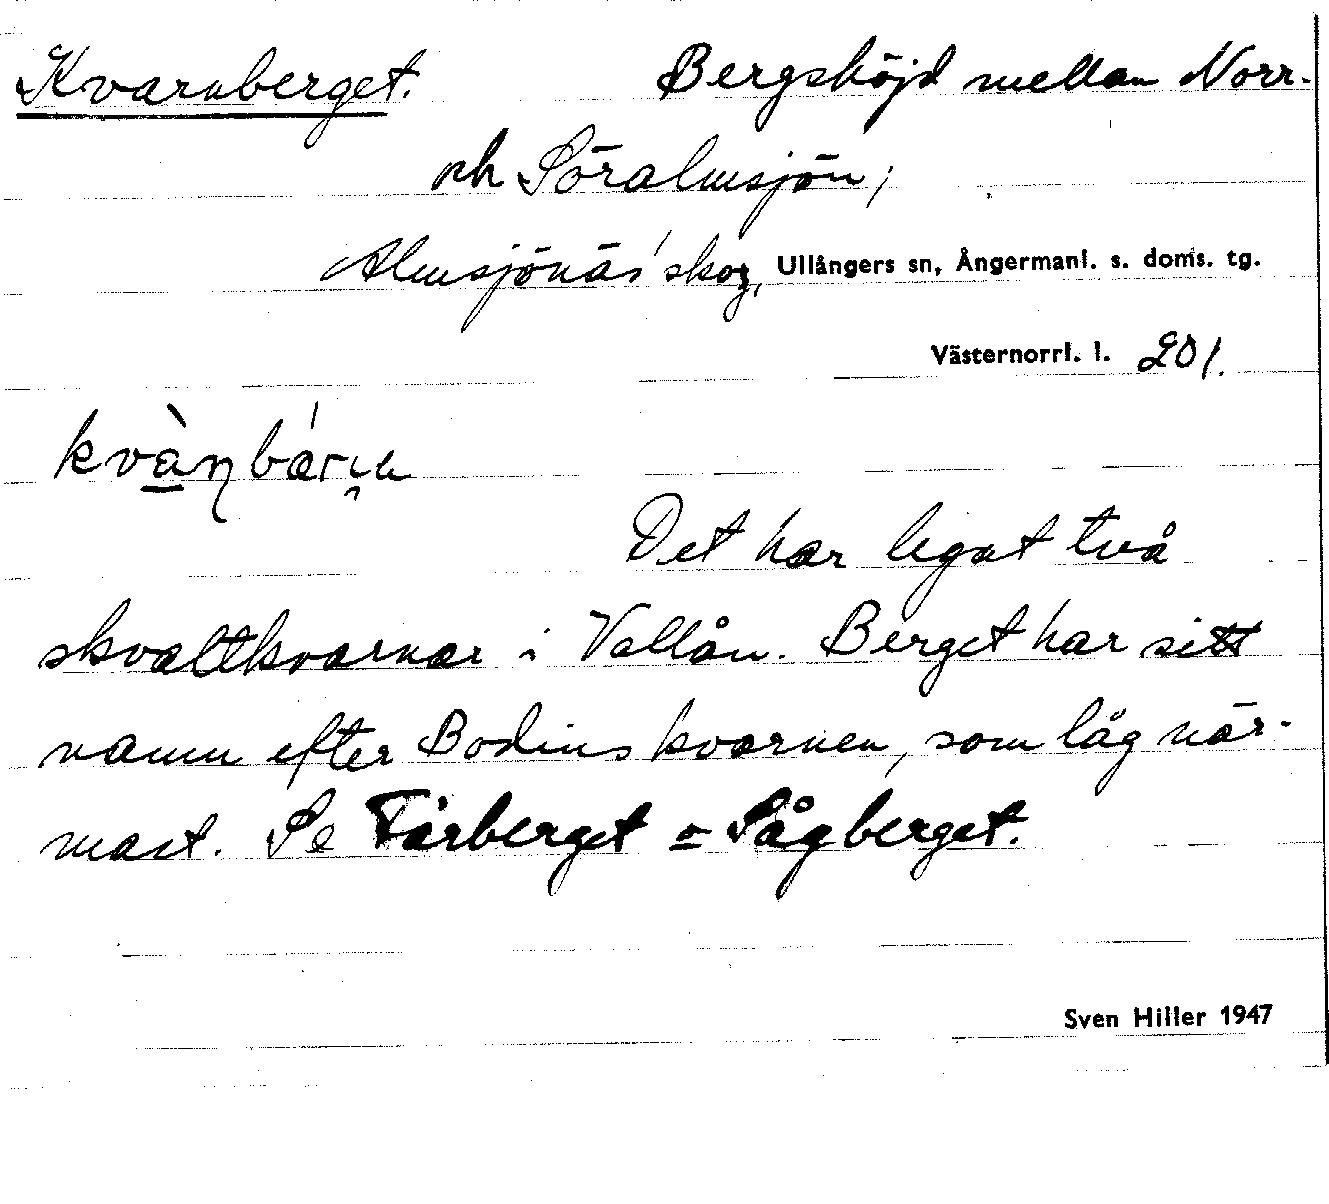 Kvarnberget. Bergshöjd mellan Norr-
och Söralmsjön,
Almsjönäs' skog, Ullångers sn, Ångermanl. s. doms. tg.
Västernorrl. l. 201.
Det har legat två
skvaltkvarnar i Vallån. Berget har sitt
namn efter Bodins kvarnen, som låg när-
mast. Se Fårberget o Sågberget.
Sven Hiller 1947